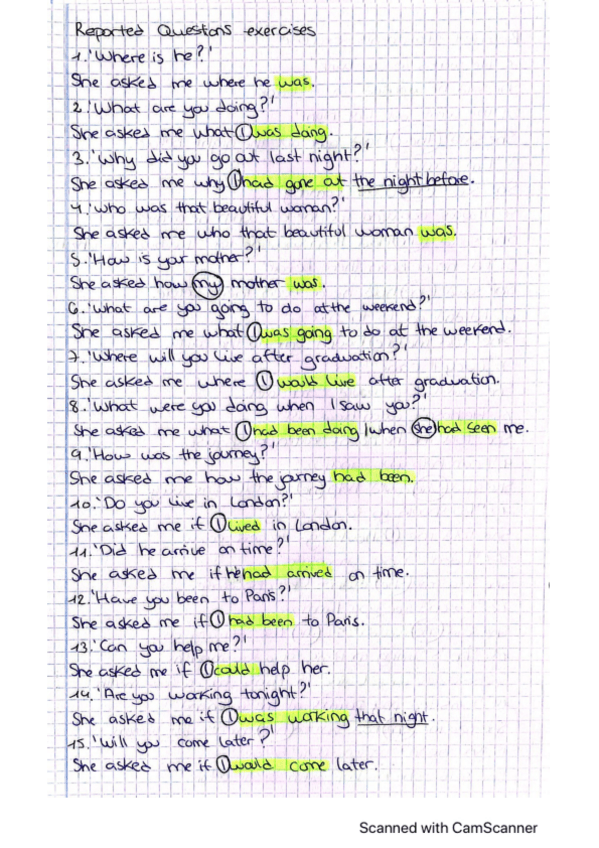 Reported Questons exercises
1.'Where is he?'
She asked me where he was.
2.'What are you doing?'
She asked me what I was doing.
3.'Why did you go out last night?'
She asked me why I had gone out the night before.
4.'Who was that beautiful woman?'
She asked me who that beautiful woman was.
5.'How is your mother?'
She asked how my mother was.
6.'What are you going to do at the weekend?'
She asked me what I was going to do at the weekend.
7.'Where will you live after graduation?'
She asked me where I would live after graduation.
8.'What were you doing when I saw you?'
She asked me what I had been doing when she had seen me.
9.'How was the journey?'
She asked me how the journey had been.
10.'Do you live in London?'
She asked me if I lived in London.
11.'Did he arrive on time?'
She asked me if he had arrived on time.
12.'Have you been to Paris?'
She asked me if I had been to Paris.
13.'Can you help me?'
She asked me if I could help her.
14.'Are you working tonight?'
She asked me if I was working that night.
15.'Will you come later?'
She asked me if I would come later.
Scanned with CamScanner